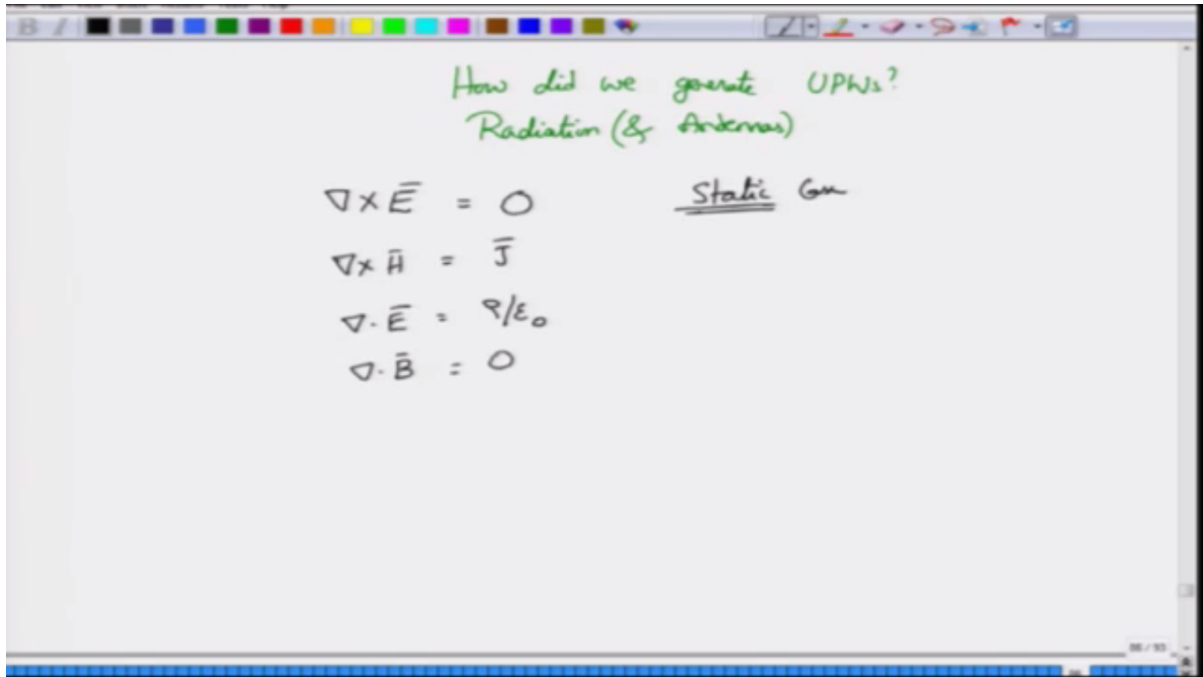 How did we generate UPWs?
Radiation (& Antennas)
∇ × E̅ = 0 Static Case
∇ × H̅ = J̅
∇ · E̅ = ρ/ε₀
∇ · B̅ = 0
86 / 93